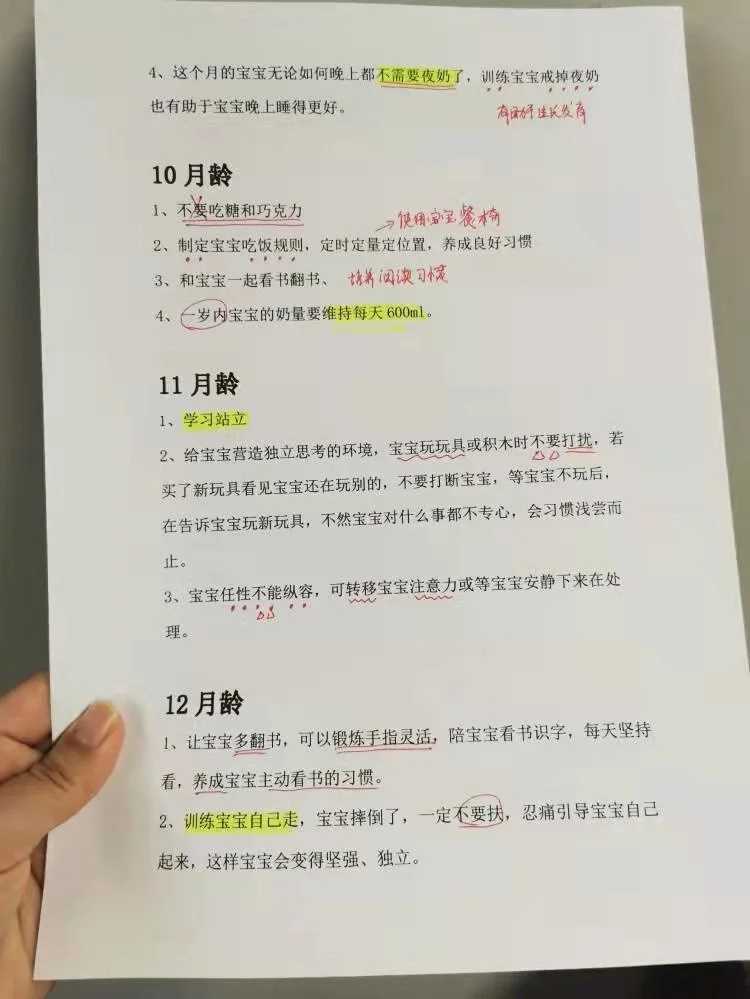 4、这个月的宝宝无论如何晚上都不需要夜奶了，训练宝宝戒掉夜奶
也有助于宝宝晚上睡得更好。
有助于生长发育
10 月龄
1、不要吃糖和巧克力
→使用宝宝餐椅
2、制定宝宝吃饭规则，定时定量定位置，养成良好习惯
3、和宝宝一起看书翻书、 培养阅读习惯
4、一岁内宝宝的奶量要维持每天 600ml。
11 月龄
1、学习站立
2、给宝宝营造独立思考的环境，宝宝玩玩具或积木时不要打扰，若
买了新玩具看见宝宝还在玩别的，不要打断宝宝，等宝宝不玩后，
在告诉宝宝玩新玩具，不然宝宝对什么事都不专心，会习惯浅尝而
止。
3、宝宝任性不能纵容，可转移宝宝注意力或等宝宝安静下来在处
理。
12 月龄
1、让宝宝多翻书，可以锻炼手指灵活，陪宝宝看书识字，每天坚持
看，养成宝宝主动看书的习惯。
2、训练宝宝自己走，宝宝摔倒了，一定不要扶，忍痛引导宝宝自己
起来，这样宝宝会变得坚强、独立。